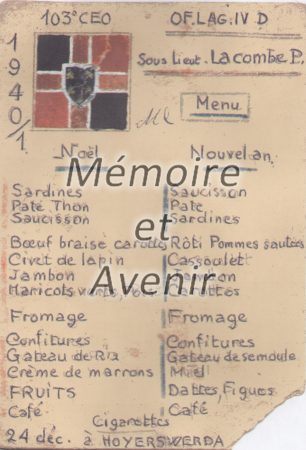 103° CEO OF. LAG. IV D
1940/1.
Sous Lieut. Lacombe P.
Menu
Noël Nouvel an
Mémoire
et
Avenir
Sardines Saucisson
Paté Thon Pate
Saucisson Sardines
Bœuf braise carottes Rôti Pommes sautées
Civet de lapin Cassoulet
Jambon Jambon
Haricots verts, Carottes
Fromage Fromage
Confitures Confitures
Gateau de Riz Gateau de semoule
Crème de marrons Miel
FRUITS Dattes, Figues
Café Café
Cigarettes
24 déc. à HOYERSWERDA